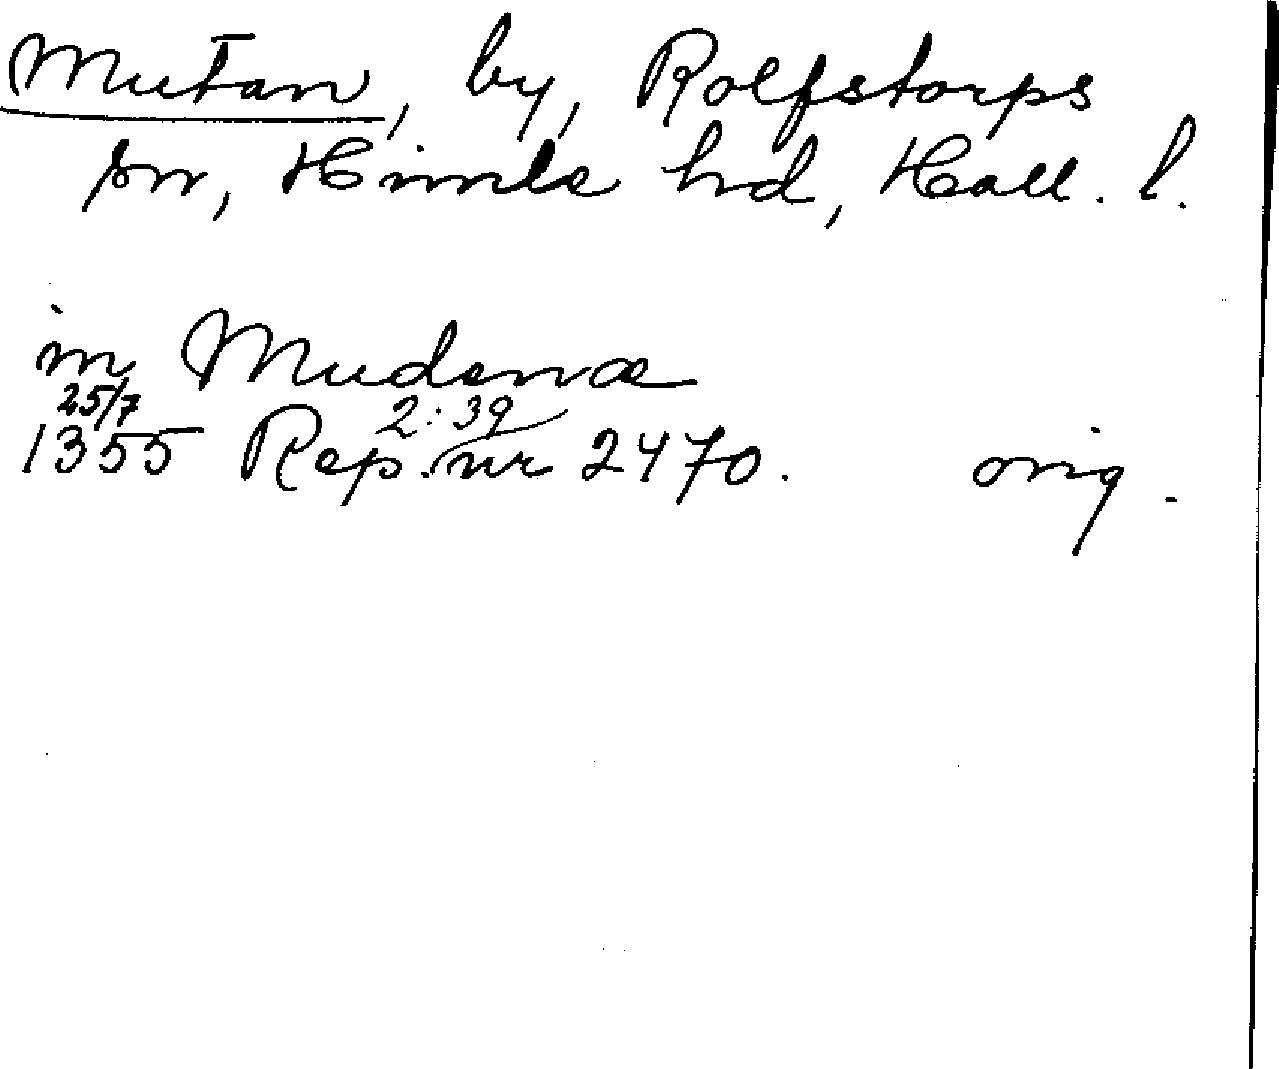 Mutan, by, Rolfstorps
sn, Himle hd, Hall. l.
in Mudenæ
25/7
2:39
1355 Rep. nr 2470. orig.